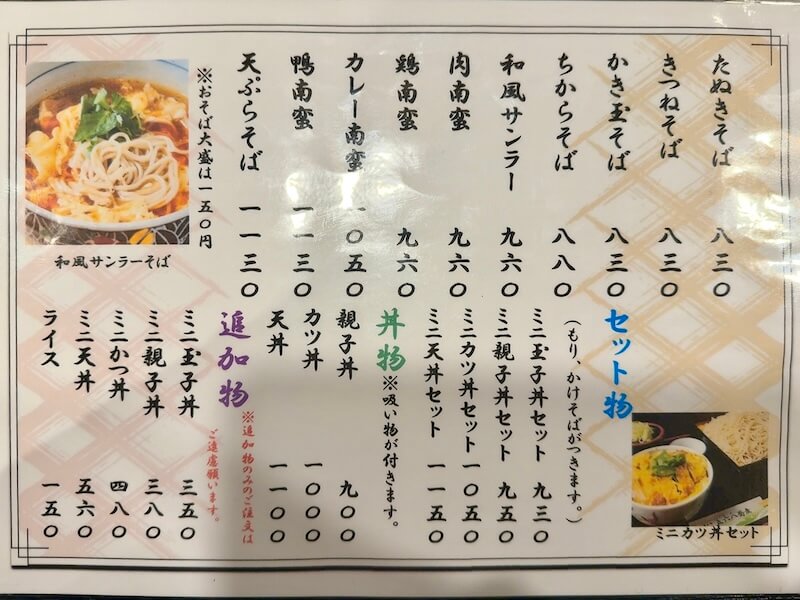 たぬきそば 八三〇
きつねそば 八三〇
かき玉そば 八三〇
ちからそば 八八〇
和風サンラー 九六〇
肉南蛮 九六〇
鶏南蛮 九六〇
カレー南蛮 一〇五〇
鴨南蛮 一一三〇
天ぷらそば 一一三〇
※おそば大盛は一五〇円
和風サンラーそば
セット物
(もり、かけそばがつきます。)
ミニ玉子丼セット 九三〇
ミニ親子丼セット 九五〇
ミニカツ丼セット 一〇五〇
ミニ天丼セット 一一五〇
ミニカツ丼セット
丼物
※吸い物が付きます。
親子丼 九〇〇
カツ丼 一〇〇〇
天丼 一一〇〇
追加物
※追加物のみのご注文は
ご遠慮願います。
ミニ玉子丼 三五〇
ミニ親子丼 三八〇
ミニかつ丼 四八〇
ミニ天丼 五六〇
ライス 一五〇